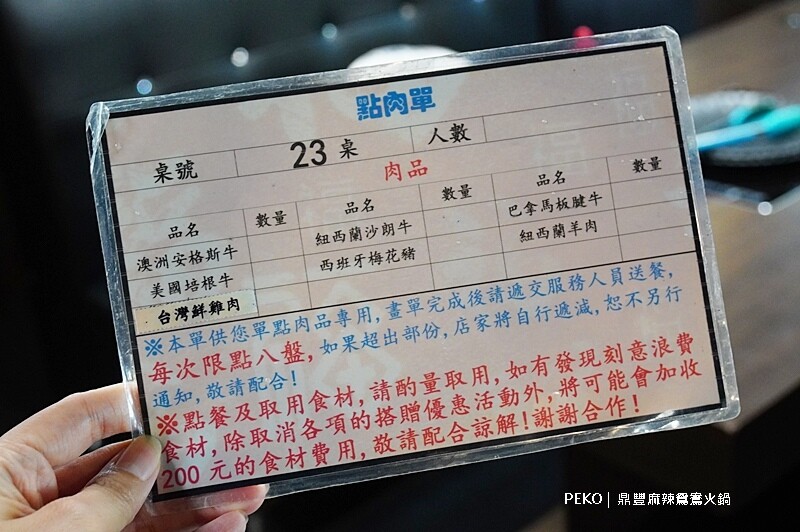 點肉單
桌號 23 桌 人數
肉品
品名 數量 品名 數量 品名 數量
澳洲安格斯牛 紐西蘭沙朗牛 巴拿馬板腱牛
美國培根牛 西班牙梅花豬 紐西蘭羊肉
台灣鮮雞肉
※本單供您單點肉品專用,畫單完成後請遞交服務人員送餐,
每次限點八盤,如果超出部份,店家將自行遞減,恕不另行
通知,敬請配合!
※點餐及取用食材,請酌量取用,如有發現刻意浪費
食材,除取消各項的搭贈優惠活動外,將可能會加收
200 元的食材費用,敬請配合諒解!謝謝合作!
PEKO | 鼎豐麻辣鴛鴦火鍋